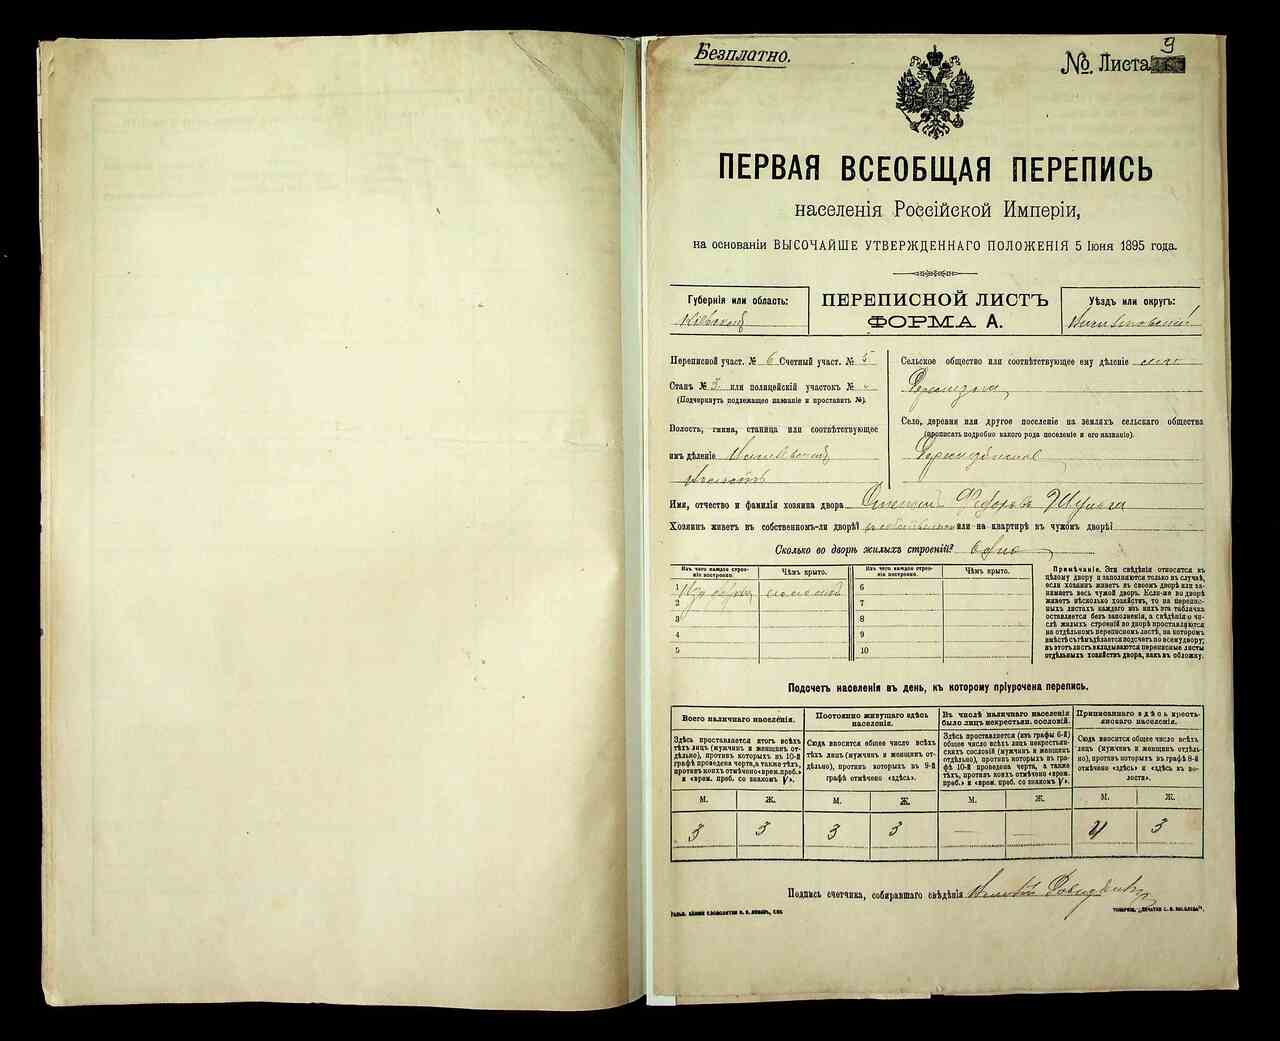 Безплатно.
№ Листа 9
ПЕРВАЯ ВСЕОБЩАЯ ПЕРЕПИСЬ
населенія Россійской Имперіи,
на основаніи ВЫСОЧАЙШЕ УТВЕРЖДЕННАГО ПОЛОЖЕНІЯ 5 Іюня 1895 года.
Губернія или область:
Кіевской
ПЕРЕПИСНОЙ ЛИСТЪ
ФОРМА А.
Уѣздъ или округъ:
Переписной участ. № 6 Счетный участ. № 5
Станъ № 3 или полицейскій участокъ №
(Подчеркнуть подлежащее названіе и проставить №).
Волость, гмина, станица или соотвѣтствующее
имъ дѣленіе
Сельское общество или соотвѣтствующее ему дѣленіе
Село, деревня или другое поселеніе на земляхъ сельскаго общества
(прописать подробно какого рода поселеніе и его названіе).
Имя, отчество и фамилія хозяина двора Федоровъ Шуляга
Хозяинъ живетъ въ собственномъ-ли дворѣ? или на квартирѣ въ чужомъ дворѣ?
Сколько во дворѣ жилыхъ строеній? Одно
Изъ чего каждое строеніе построено.
Чѣмъ крыто.
Изъ чего каждое строеніе построено.
Чѣмъ крыто.
1 Изъ дерева соломой 6
2 7
3 8
4 9
5 10
Примѣчаніе. Эти свѣдѣнія относятся къ
цѣлому двору и заполняются только въ случаѣ,
если хозяинъ живетъ въ своемъ дворѣ или за-
нимаетъ весь чужой дворъ. Если-же во дворѣ
живетъ нѣсколько хозяйствъ, то на перепис-
ныхъ листахъ каждаго изъ нихъ эта табличка
оставляется безъ заполненія, а свѣдѣнія о чи-
слѣ жилыхъ строеній во дворѣ проставляются
на отдѣльномъ переписномъ листѣ, на которомъ
вмѣстѣ съ тѣмъ дѣлается подсчетъ по всему двору;
въ этотъ листъ вкладываются переписные листы
отдѣльныхъ хозяйствъ двора, какъ въ обложку.
Подсчетъ населенія въ день, къ которому пріурочена перепись.
Всего наличнаго населенія.
Здѣсь проставляется итогъ всѣхъ
тѣхъ лицъ (мужчинъ и женщинъ от-
дѣльно), противъ которыхъ въ 10-й
графѣ проведена черта, а также тѣхъ,
противъ коихъ отмѣчено «врем. преб.»
и «врем. преб. со знакомъ V».
Постоянно живущаго здѣсь
населенія.
Сюда вносится общее число всѣхъ
тѣхъ лицъ (мужчинъ и женщинъ от-
дѣльно), противъ которыхъ въ 9-й
графѣ отмѣчено «здѣсь».
Въ числѣ наличнаго населенія
было лицъ некрестьян. сословій.
Здѣсь проставляется (изъ графы 6-й)
общее число всѣхъ лицъ некрестьян-
скихъ сословій (мужчинъ и женщинъ
отдѣльно), противъ которыхъ въ гра-
фѣ 10-й проведена черта, а также
тѣхъ, противъ коихъ отмѣчено «врем.
преб.» и «врем. преб. со знакомъ V».
Приписаннаго здѣсь кресть-
янскаго населенія.
Сюда вносится общее число всѣхъ
лицъ (мужчинъ и женщинъ отдѣль-
но), противъ которыхъ въ графѣ 8-й
отмѣчено «здѣсь» и «здѣсь въ во-
лости».
М. Ж. М. Ж. М. Ж. М. Ж.
3 3 3 3 — — 4 3
Подпись счетчика, собиравшаго свѣдѣнія